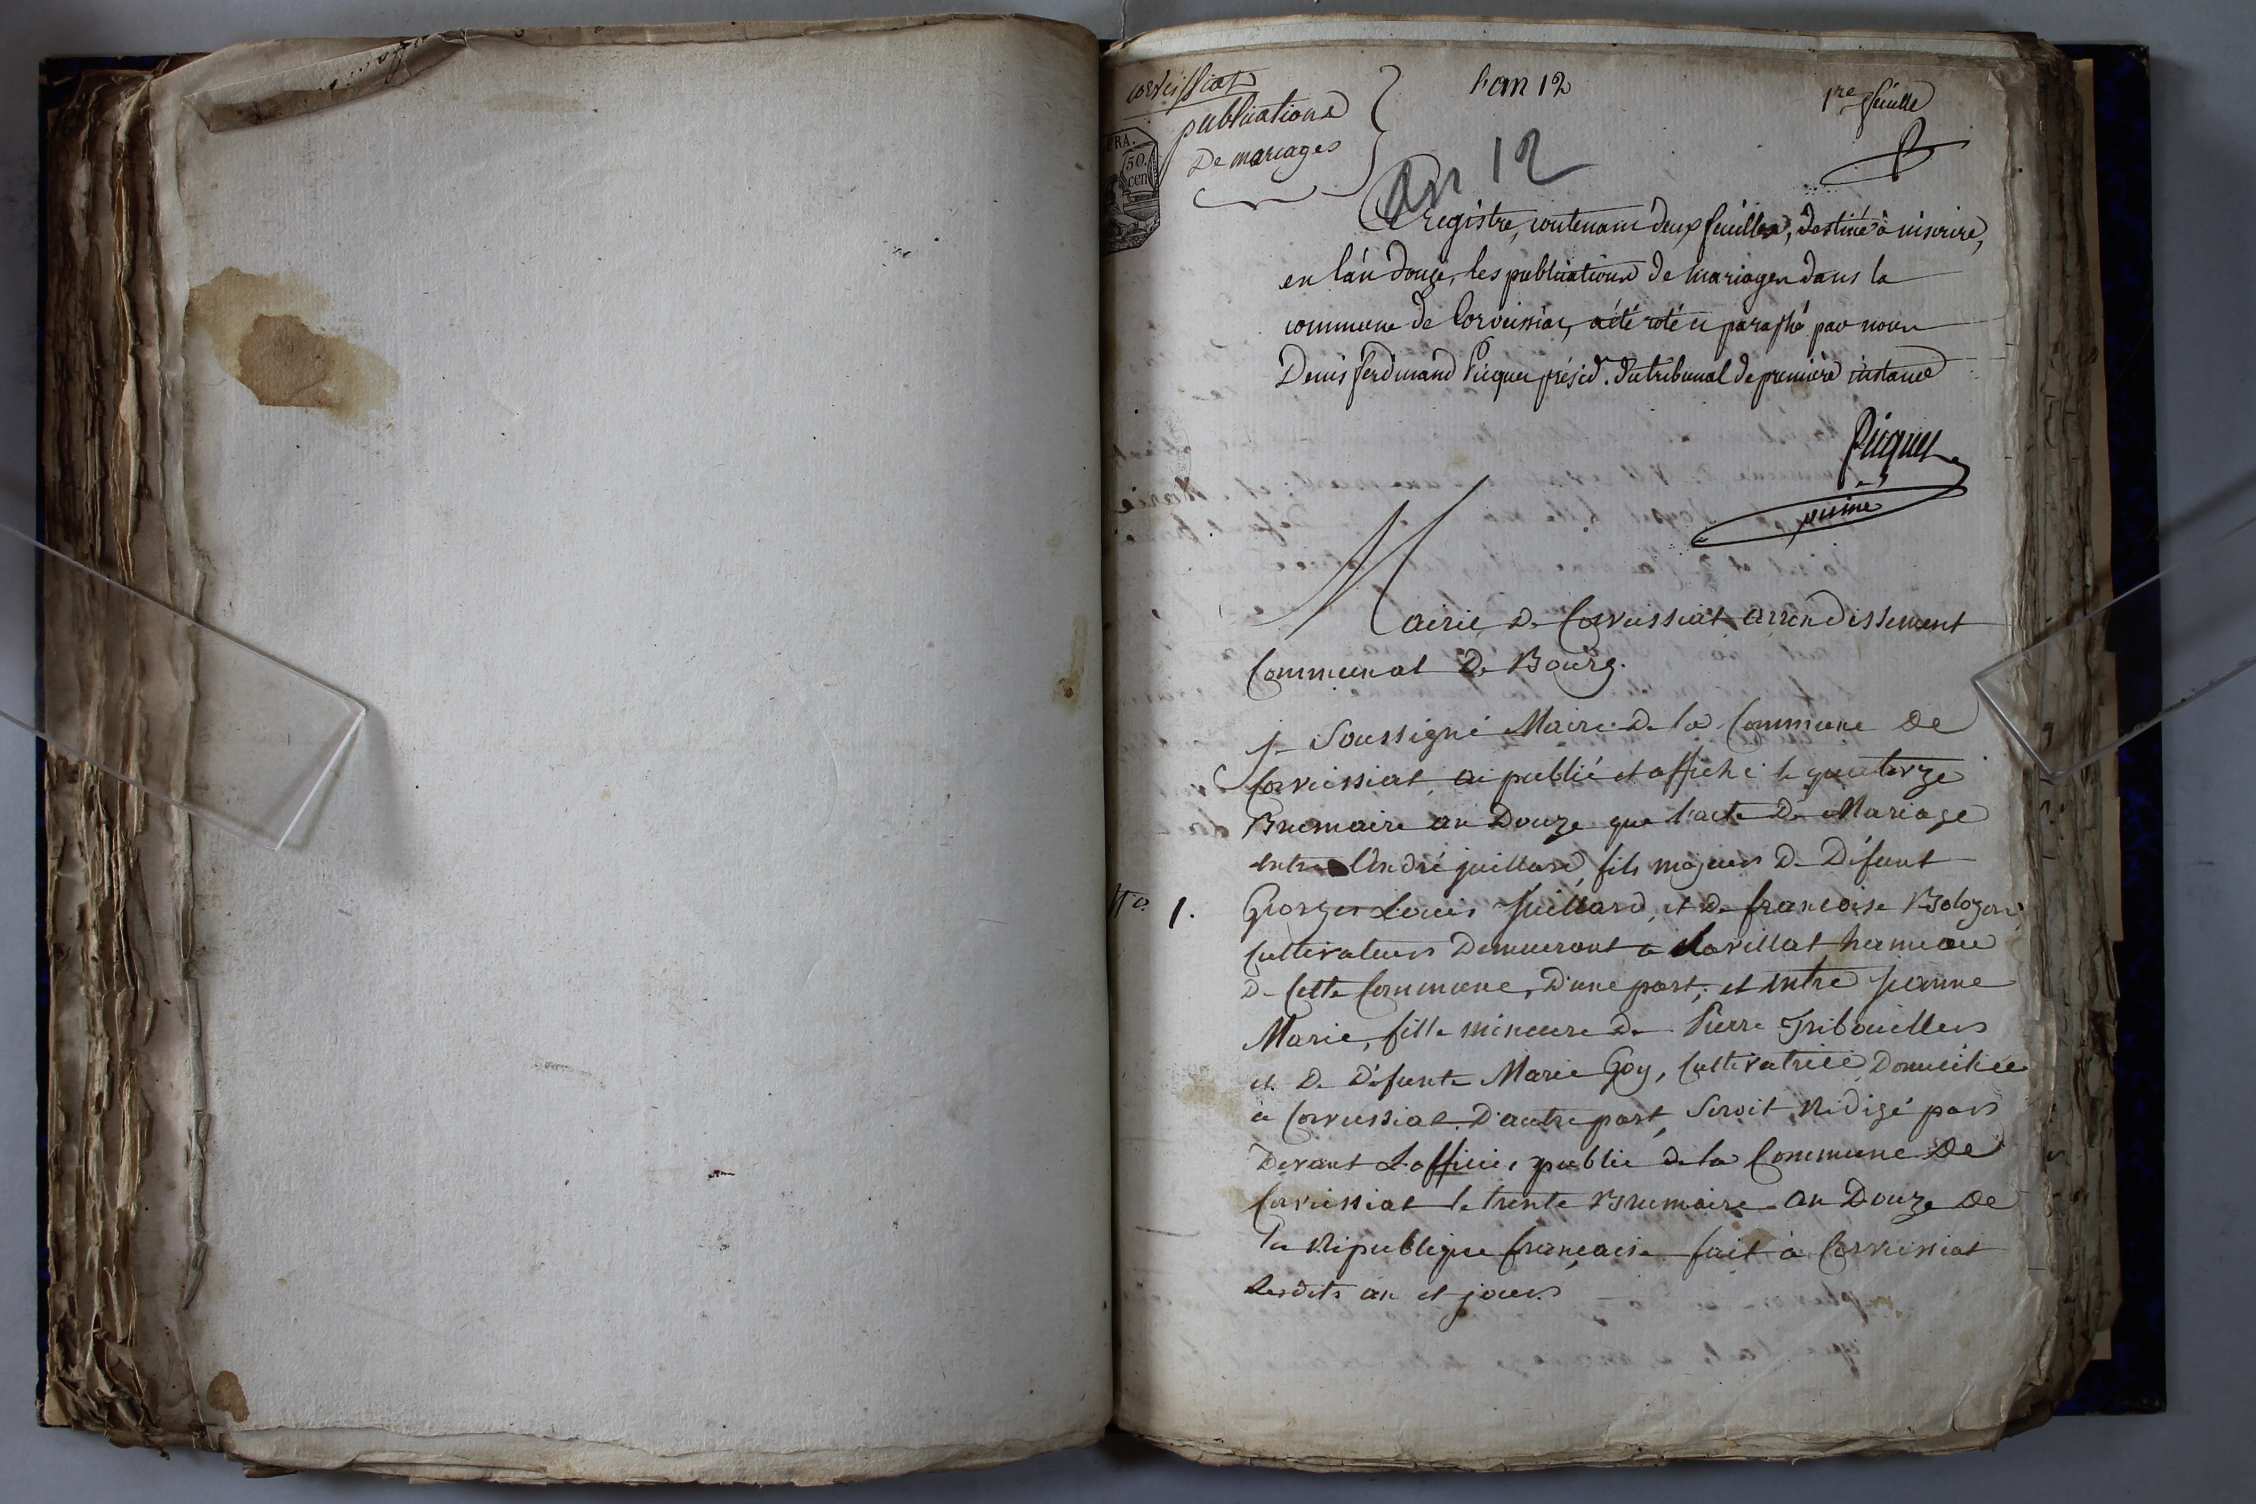 Corveissiat
publications
De mariages
l'an 12
1re feuille
FRA.
50.
cen
An 12
Ce registre, contenant deux feuilles, destiné à inscrire,
en l'an douze, les publications de mariages dans la
commune de Corveissiat, a été coté et paraphé par nous
Denis ferdinand Picquet présid. du tribunal de première instance
Picquet
Mairie De Corveissiat arrondissement
Communal De Bourg.
je Soussigné Maire De la Commune De
Corveissiat, ai publié et affiché le quatorze
Brumaire an Douze que l'acte De Mariage
entre André juillard, fils majeur De Défunt
No. 1. Georges Louis juillard, et De francoise Bolozon,
Cultivateurs Demeurant a hameau
De Cette Commune, D'une part, et entre jeanne
Marie, fille mineure De Pierre Tribouillers
et De Défunte Marie Goy, Cultivatrice Domiciliée
a Corveissiat D'autre part, Seroit Rédigé par
Devant L'officier public de la Commune De
Corveissiat le trente Brumaire an Douze De
la République francaise fait à Corveissiat
Lesdits an et jours